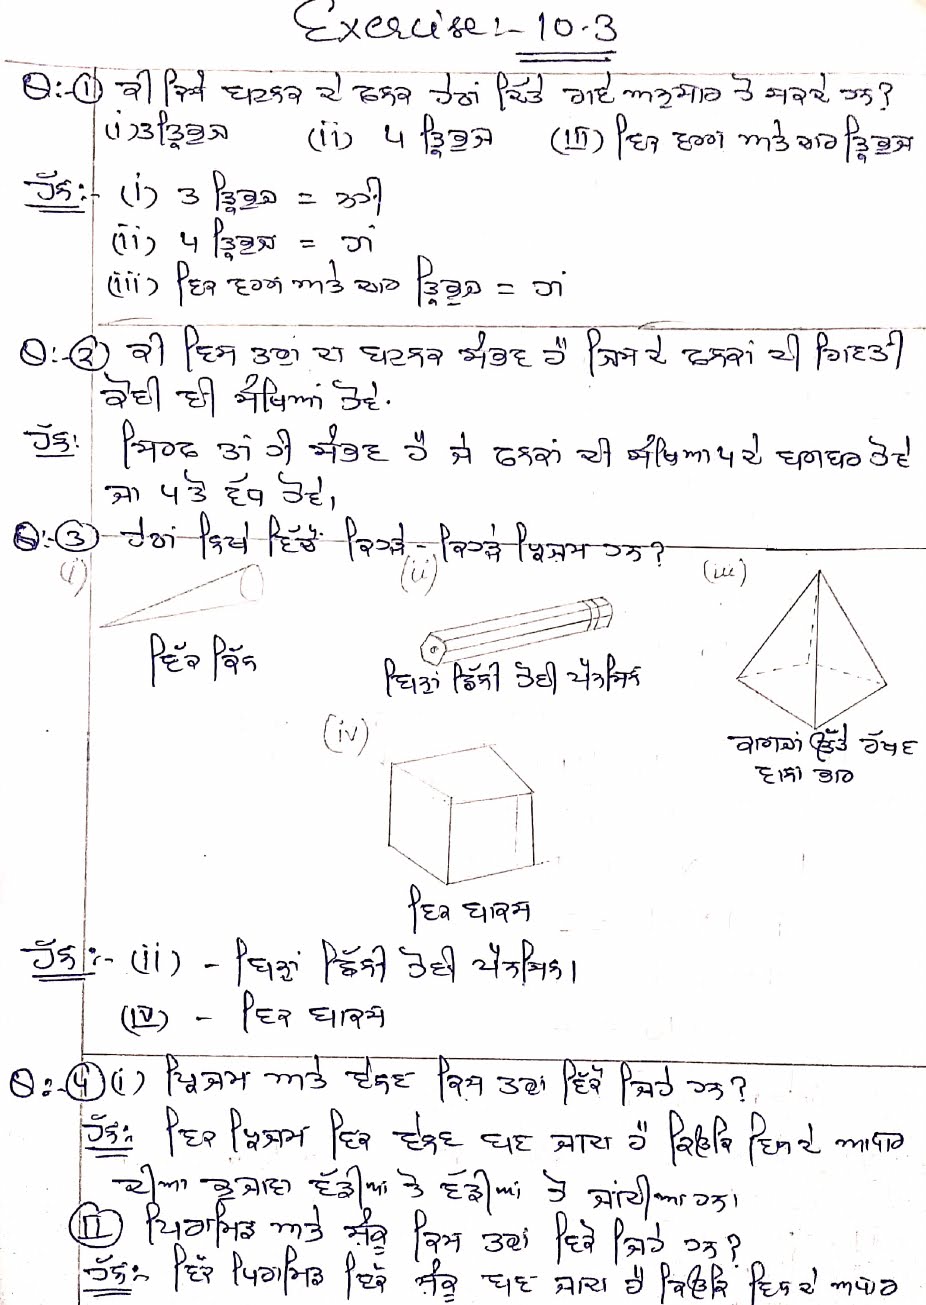 Exercise:- 10.3
Q:-① ਕੀ ਕਿਸੇ ਘਣਨਕ ਦੇ ਫਲਕ ਹੇਠਾਂ ਦਿੱਤੇ ਗਏ ਅਨੁਸਾਰ ਹੋ ਸਕਦੇ ਹਨ?
(i) 3 ਤ੍ਰਿਭੁਜ (ii) 4 ਤ੍ਰਿਭੁਜ (iii) ਇਕ ਵਰਗ ਅਤੇ ਚਾਰ ਤ੍ਰਿਭੁਜ
ਹੱਲ:- (i) 3 ਤ੍ਰਿਭੁਜ = ਨਹੀ
(ii) 4 ਤ੍ਰਿਭੁਜ = ਹਾਂ
(iii) ਇਕ ਵਰਗ ਅਤੇ ਚਾਰ ਤ੍ਰਿਭੁਜ = ਹਾਂ
Q:-② ਕੀ ਇਸ ਤਰਾਂ ਦਾ ਘਣਨਕ ਸੰਭਵ ਹੈ ਜਿਸ ਦੇ ਫਲਕਾਂ ਦੀ ਗਿਣਤੀ
ਕੋਈ ਵੀ ਸੰਖਿਆ ਹੋਵੇ.
ਹੱਲ: ਸਿਰਫ ਤਾਂ ਹੀ ਸੰਭਵ ਹੈ ਜੇ ਫਲਕਾਂ ਦੀ ਸੰਖਿਆ 4 ਦੇ ਬਰਾਬਰ ਹੋਵੇ
ਜਾ 4 ਤੋ ਵੱਧ ਹੋਵੇ,
Q:-③ ਹੇਠਾਂ ਲਿਖੇ ਵਿੱਚੋਂ ਕਿਹੜੇ-ਕਿਹੜੇ ਪ੍ਰਿਜ਼ਮ ਹਨ?
(i) (ii) (iii)
ਇੱਕ ਕਿੱਲ
ਬਿਨਾਂ ਛਿੱਲੀ ਹੋਈ ਪੈਨਸਿਲ
ਕਾਗਜਾਂ ਉੱਤੇ ਰੱਖਣ
ਵਾਲਾ ਭਾਰ
(iv)
ਇਕ ਬਾਕਸ
ਹੱਲ:- (ii) - ਬਿਨਾਂ ਛਿੱਲੀ ਹੋਈ ਪੈਨਸਿਲ।
(iv) - ਇਕ ਬਾਕਸ
Q:-④ (i) ਪ੍ਰਿਜ਼ਮ ਅਤੇ ਵੇਲਣ ਕਿਸ ਤਰਾਂ ਇੱਕੋ ਜਿਹੇ ਹਨ?
ਹੱਲ:- ਇਕ ਪ੍ਰਿਜ਼ਮ ਇਕ ਵੇਲਣ ਬਣ ਜਾਦਾ ਹੈ ਕਿਉਂਕਿ ਇਸ ਦੇ ਆਧਾਰ
ਦੀਆ ਭੁਜਾਵਾ ਵੱਡੀਆਂ ਤੇ ਵੱਡੀਆਂ ਹੋ ਜਾਂਦੀਆ ਹਨ।
(II) ਪਿਰਾਮਿਡ ਅਤੇ ਸ਼ੰਕੂ ਕਿਸ ਤਰਾਂ ਇਕੋ ਜਿਹੇ ਹਨ?
ਹੱਲ:- ਇੱਕ ਪਿਰਾਮਿਡ ਇੱਕ ਸ਼ੰਕੂ ਬਣ ਜਾਦਾ ਹੈ ਕਿਉਂਕਿ ਇਸ ਦੇ ਅਧਾਰ